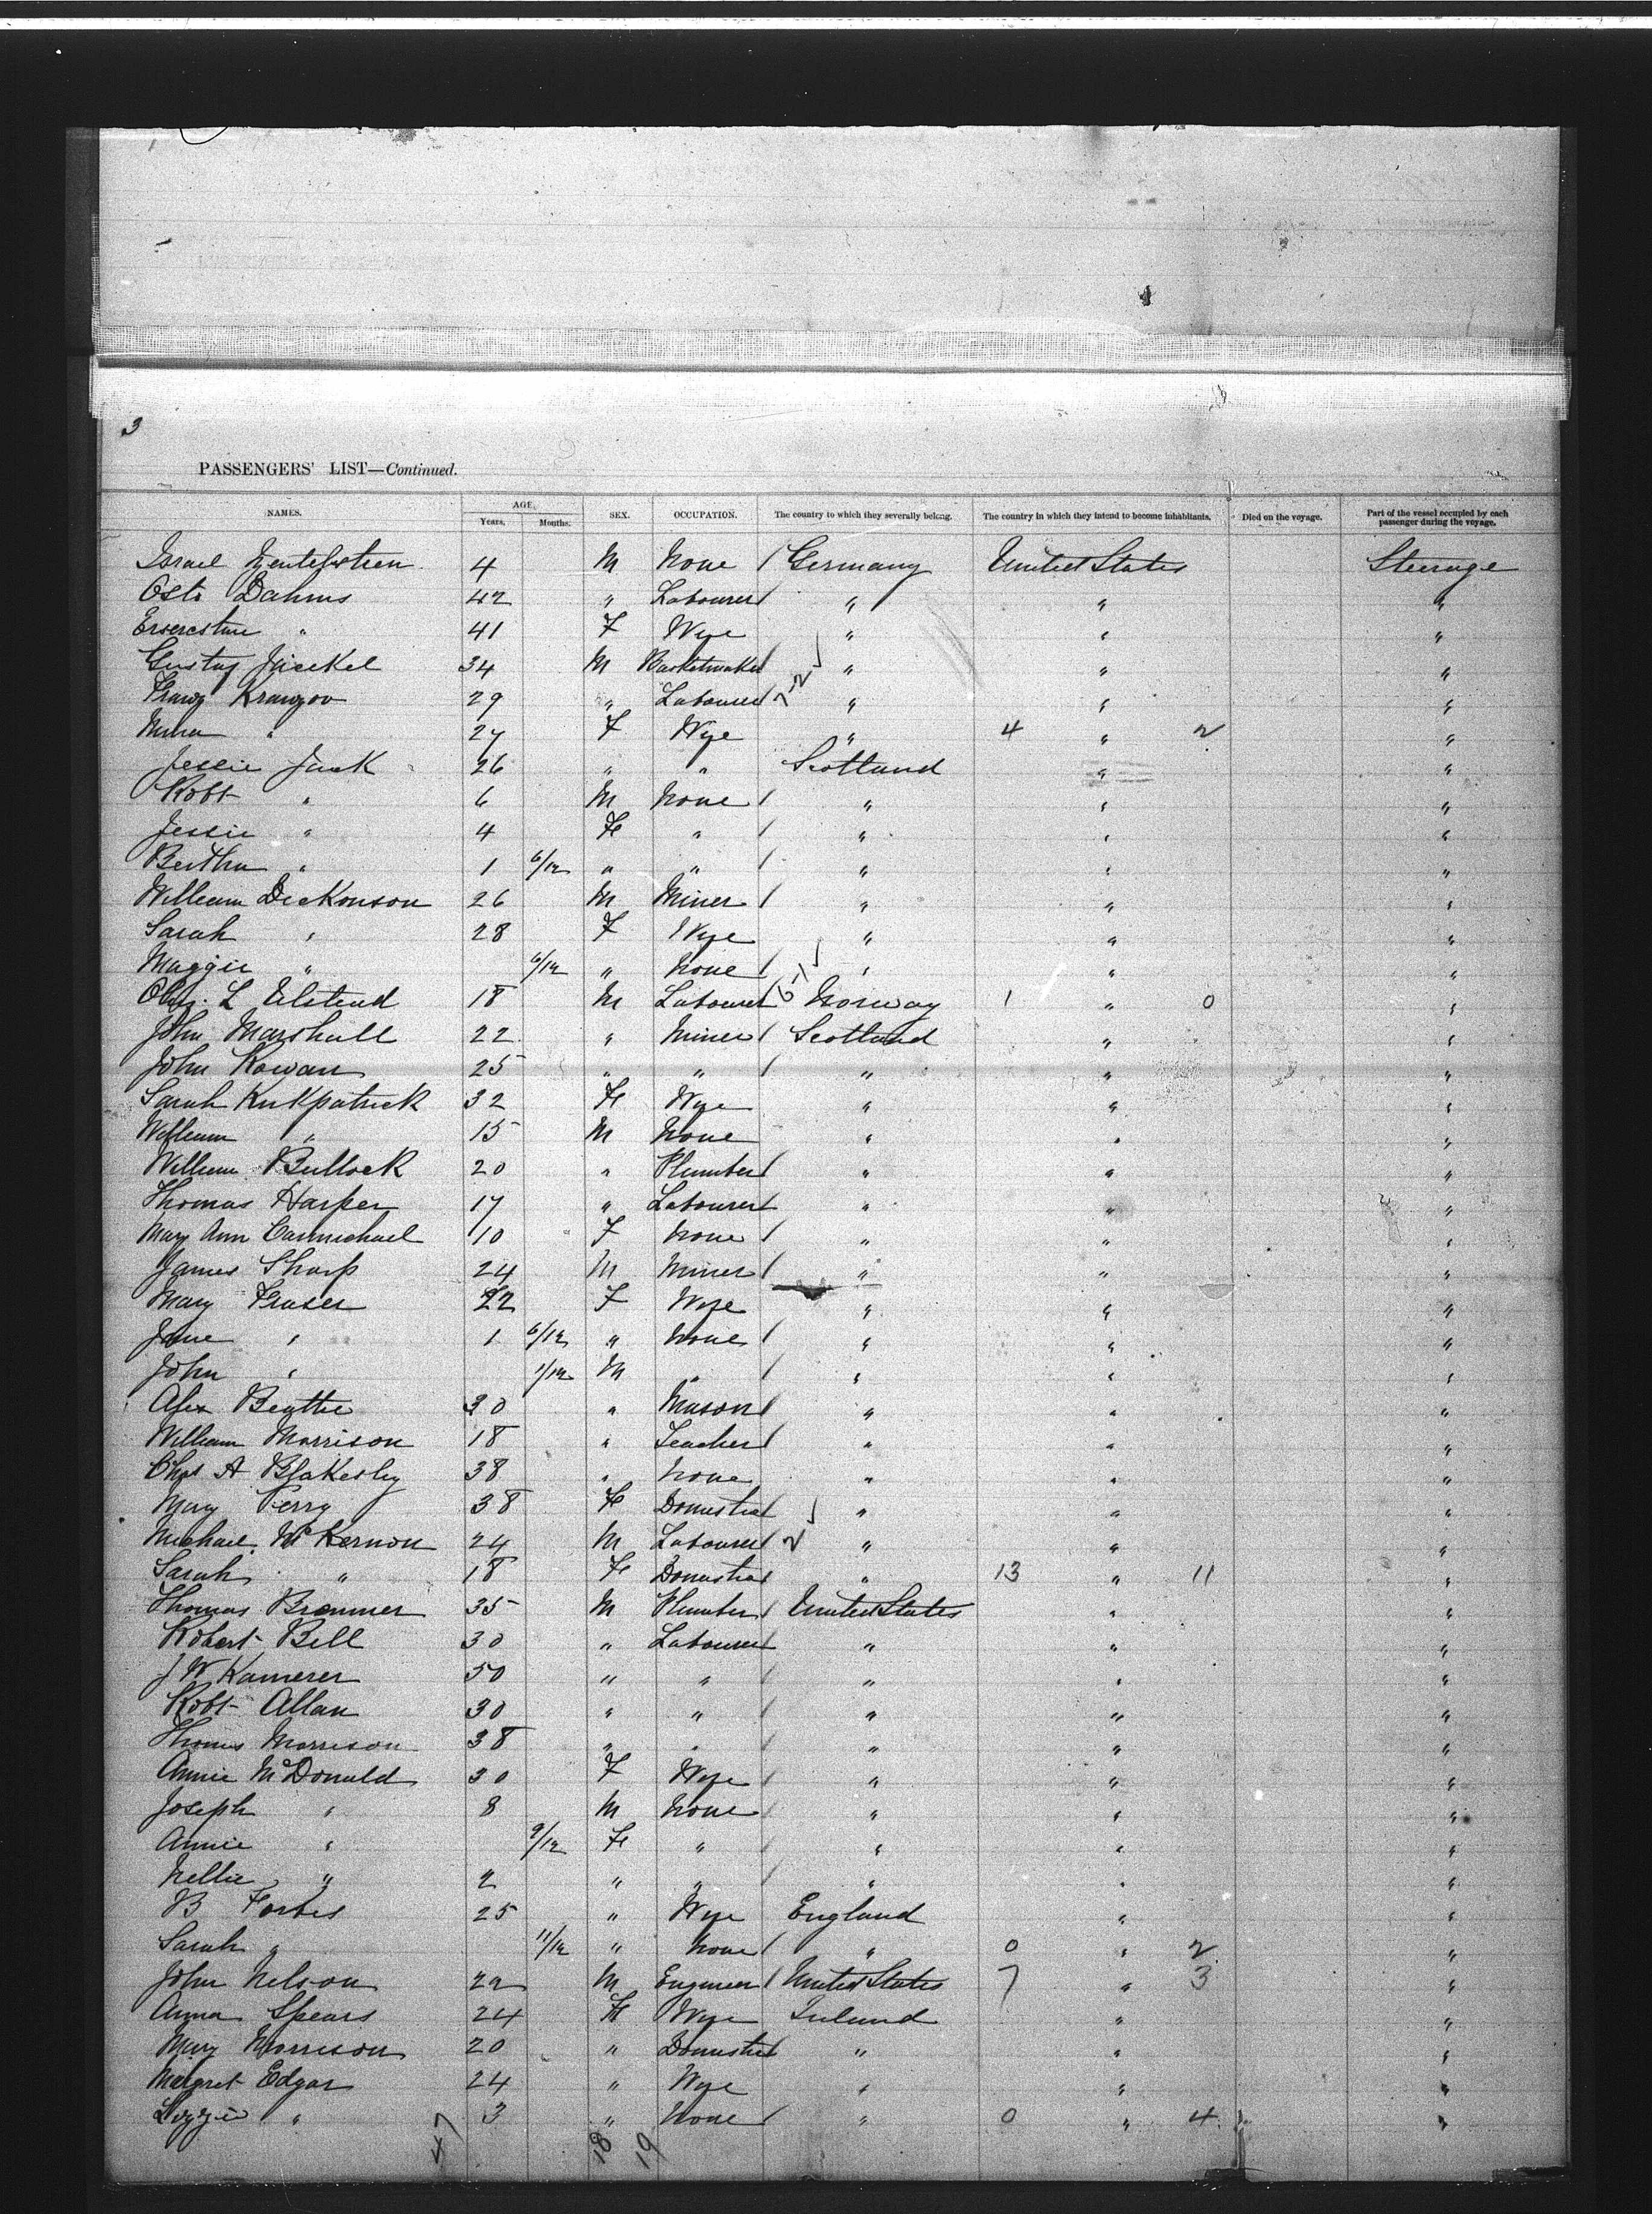 3
PASSENGERS' LIST—Continued.
NAMES. AGE. SEX. OCCUPATION. The country to which they severally belong. The country in which they intend to become inhabitants. Died on the voyage. Part of the vessel occupied by each passenger during the voyage.
Years. Months.
Israel 4 M None / Germany United States Steerage
Dahms 42 " Labourer / " " "
" 41 F Wife " " "
Gustaf 34 M Basketmaker " " "
Franz 29 " Labourer " " "
" 27 F Wife " 4 " 2 "
Jessie Jack 26 " " Scotland " "
Robt " 6 M None / " " "
Jessie " 4 F " / " " "
Bertha " 1 6/12 " " / " " "
William Dickonson 26 M Miner / " " "
Sarah " 28 F Wife " " "
Maggie " 6/12 " None / " " "
L 18 M Labourer Norway 1 " 0 "
John Marshall 22 " Miner / Scotland " "
John Rowan 25 " " / " " "
Sarah Kirkpatrick 32 F Wife " " "
William " 15 M None " " "
William Bullock 20 " Plumber / " " "
Thomas Harper 17 " Labourer " " "
Mary Ann Carmichael 10 F None / " " "
James Sharp 24 M Miner / " " "
Mary Fraser 22 F Wife " " "
Jane " 1 6/12 " None / " " "
John " 1/12 M " / " " "
Alex Beattie 30 " Mason / " " "
William Morrison 18 " Teacher / " " "
Chas A Blakesley 38 " None " " "
Mary Perry 38 F Domestic " " "
Michael McKernon 24 M Labourer 2 " " "
Sarah " 18 F Domestic " 13 " 11 "
Thomas Bremner 35 M Plumber / United States " "
Robert Bell 30 " Labourer " " "
J W Kamerer 50 " " / " " "
Robt Allan 30 " " / " " "
Thomas Morrison 38 " " / " " "
Annie McDonald 30 F Wife / " " "
Joseph " 8 M None / " " "
Annie " 9/12 F " / " " "
Nellie " 2 " " / " " "
B Forbes 25 " Wife England " "
Sarah " 11/12 " None / " 0 " 2 "
John Nelson 22 M Engineer / United States 7 " 3 "
Anna Spears 24 F Wife Ireland " "
Mary Morrison 20 " Domestic " " "
Margret Edgar 24 " Wife " " "
Lizzie " 3 " None / " 0 " 4 "
47 18 19